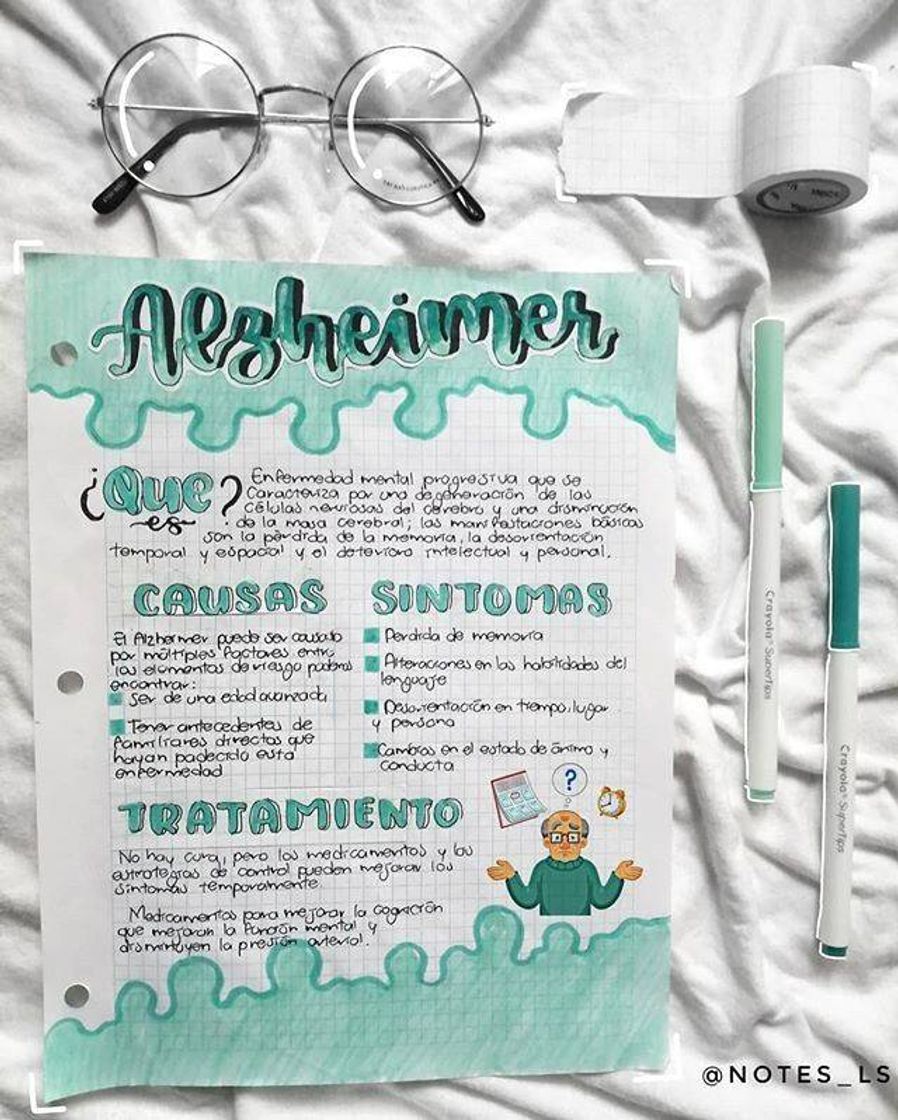 Alzheimer
¿Que es?
Enfermedad mental progresiva que se
caracteriza por una degeneración de las
células nerviosas del cerebro y una disminución
de la masa cerebral; las manifestaciones básicas
son la pérdida de la memoria, la desorientación
temporal y espacial y el deterioro intelectual y personal.
CAUSAS
El Alzheimer puede ser causado
por múltiples factores entre
los elementos de riesgo podemos
encontrar:
Ser de una edad avanzada
Tener antecedentes de
familiares directos que
hayan padecido esta
enfermedad
SINTOMAS
Perdida de memoria
Alteraciones en las habilidades del
lenguaje
Desorientación en tiempo, lugar
y persona
Cambios en el estado de ánimo y
conducta
TRATAMIENTO
No hay cura, pero los medicamentos y las
estrategias de control pueden mejorar los
síntomas temporalmente.
Medicamentos para mejorar la cognición
que mejoran la función mental y
disminuyen la presión arterial.
?
Crayola SuperTips
Crayola SuperTips
@NOTES_LS